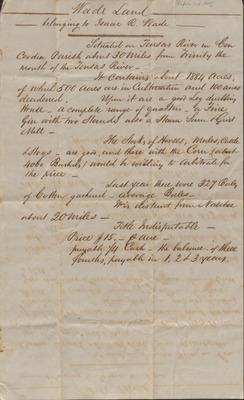 Wade Land
belonging to Isaac R. Wade
Situated on Tensas River in Con
Cordia Parish about 30 Miles from Trinity the
mouth of the Tensas River
It Contains about 1884 Acres,
of which 500 acres are in Cultivation and 100 acres
deadened. Upon it are a good Log dwelling
House - a complete range of Quarters - Gin
Gin with two Stands also a Steam Saw & Grist
Mill -
The Stock, of Horses, Mules, Cattle
& Hogs - are good, and these with the Corn (about
4000 Bushels) would be willing to
the price -
Last year there were 327 Bales
of Cotton gathered - above Bales
It is distant from Natchez
about 20 miles -
Title Indisputable -
Price $15, - acre -
payable 1/4 Cash - the balance of three
fourths, payable in 1, 2 & 3 years.